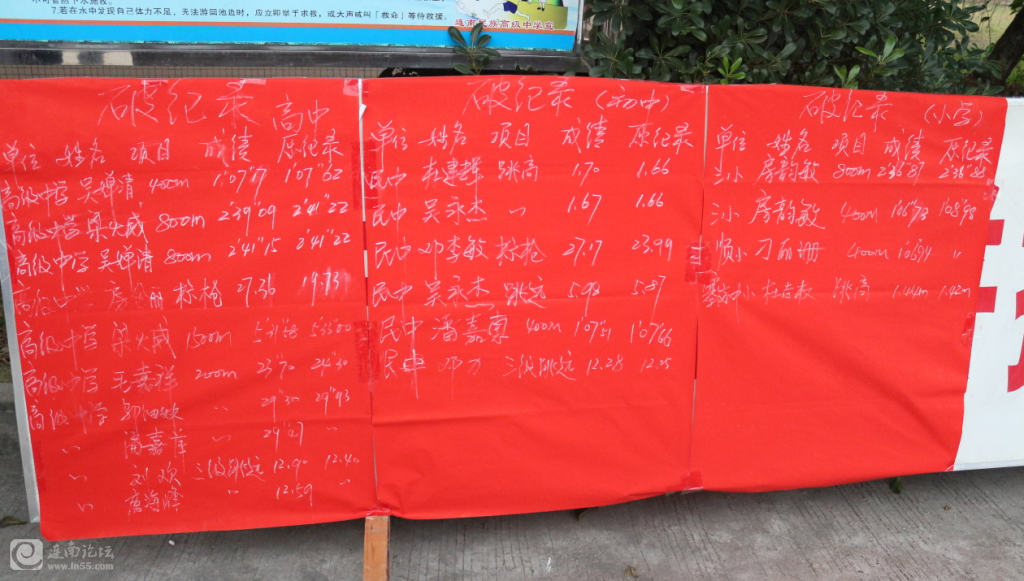 7.若在水中发现自己体力不足，无法游回池边时，应立即举手求救，或大声喊叫「救命」等待救援。
连南民族高级中学宣
破纪录 高中
单位 姓名 项目 成绩 原纪录
高级中学 吴婵清 400m 1'07"7 1'07"62
高级中学 梁火威 800m 2'39"09 2'41"22
高级中学 吴婵清 800m 2'41"15 2'41"22
高级中学 房 丽 标枪 27.36 19.73
高级中学 梁火威 1500m 5'33"00
高级中学 毛嘉祥 200m 23"70 24"30
高级中学 29"30 29"93
〃 潘嘉 〃 29"27 〃
〃 刘欢 三级跳远 12.90 12.40
〃 唐海峰 〃 12.59 〃
破纪录（初中）
单位 姓名 项目 成绩 原纪录
民中 建辉 跳高 1.70 1.66
民中 吴永杰 〃 1.67 1.66
民中 邓李敏 标枪 27.17 23.99
民中 吴永杰 跳远 5.98 5.87
民中 潘嘉 400m 1'07"51 1'07"66
民中 邓力 三级跳远 12.28 12.25
破纪录（小学）
单位 姓名 项目 成绩 原纪录
三小 房韵敏 800m 2'36"81 2'38"85
三小 房韵敏 400m 1'08"98
顺小 刁丽珊 400m 1'06"94 〃
小 杜 跳高 1.44m 1.42m
连南论坛
www.ln55.com